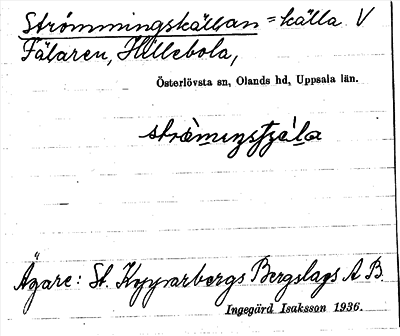 Strömmingskällan = källa V
Fälaren, Hillebola,
Österlövsta sn, Olands hd, Uppsala län.
Ägare: St. Kopparbergs Bergslags A.B.
Ingegärd Isaksson 1936.